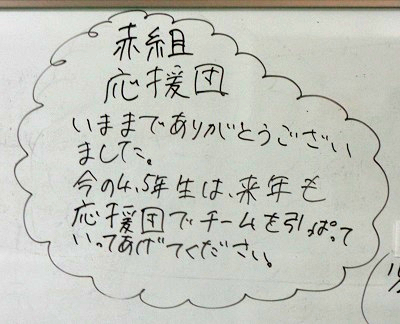 赤組
応援団
いままでありがとうござい
ました。
今の4,5年生は、来年も
応援団でチームを引っぱって
いってあげてください。